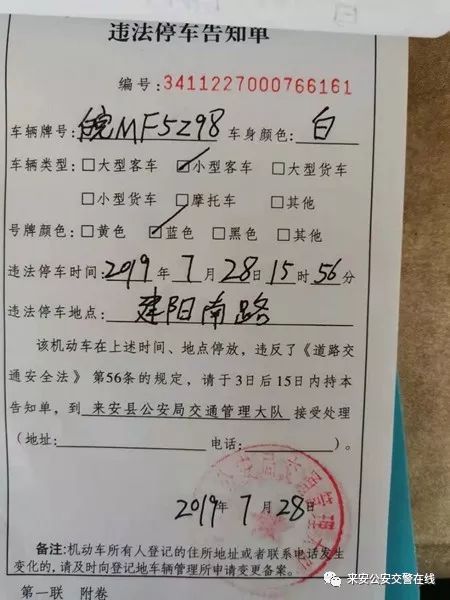 白
违法停车告知单
编号:3411227000766161
车辆牌号:皖MF5298 车身颜色:白
车辆类型:□大型客车 ☑小型客车 □大型货车
□小型货车 □摩托车 □其他
号牌颜色:□黄色 ☑蓝色 □黑色 □其他
违法停车时间:2019年7月28日15时56分
违法停车地点:建阳南路
该机动车在上述时间、地点停放,违反了《道路交
通安全法》第56条的规定,请于3日后15日内持本
告知单,到 来安县公安局交通管理大队 接受处理
(地址: 电话: )。
2019年7月28日
备注:机动车所有人登记的住所地址或者联系电话发生
变化的,请及时向登记地车辆管理所申请变更备案。
第一联 附卷
来安公安交警在线